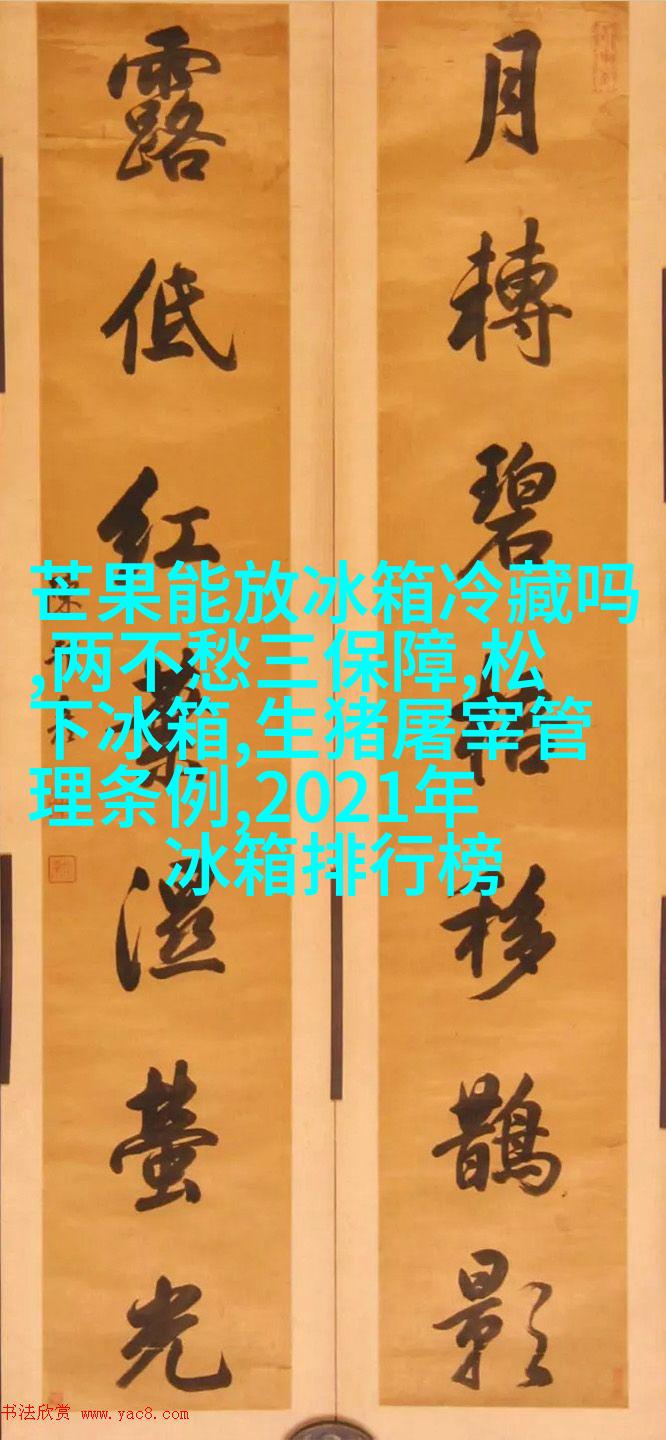 月轉碧梧移鵲影
露低紅葉濕螢光
芒果能放冰箱冷藏吗
,两不愁三保障,松
下冰箱,生猪屠宰管
理条例,2021年
冰箱排行榜
书法欣赏 www.yac8.com